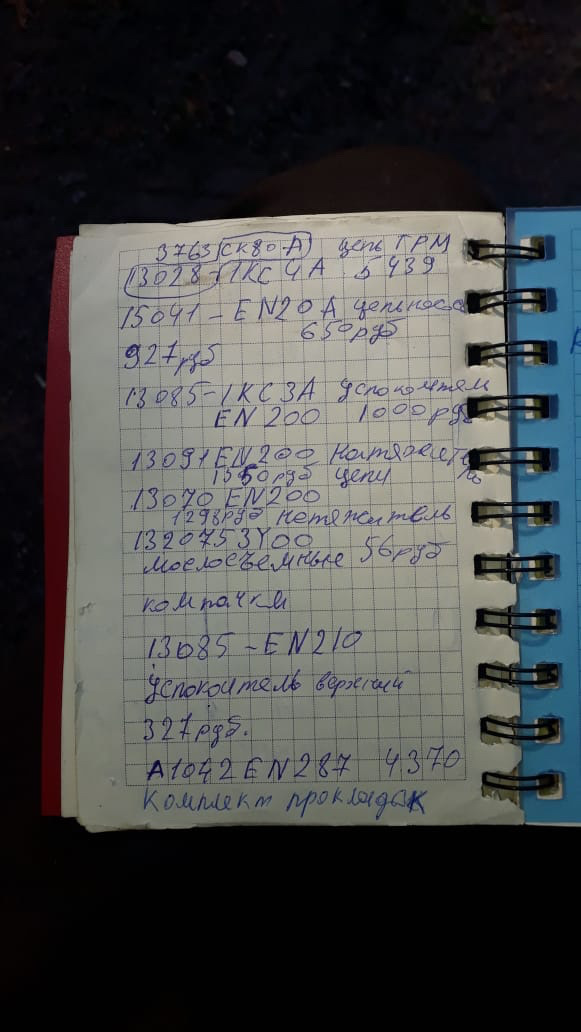 3763 СК80-А цепь ГРМ
13028-1КС 4А 5439
15041-EN20A цепь насоса
650руб
927руб
13085-1КС3А успокоитель
EN200 1000руб
13091 EN200 натяжитель
1350руб цепи
13070 EN200
1298руб натяжитель
1320753Y00
маслосъемные 56руб
компачки
13085-EN210
успокоитель верхний
327руб.
A1042EN287 4370
Комплект прокладок